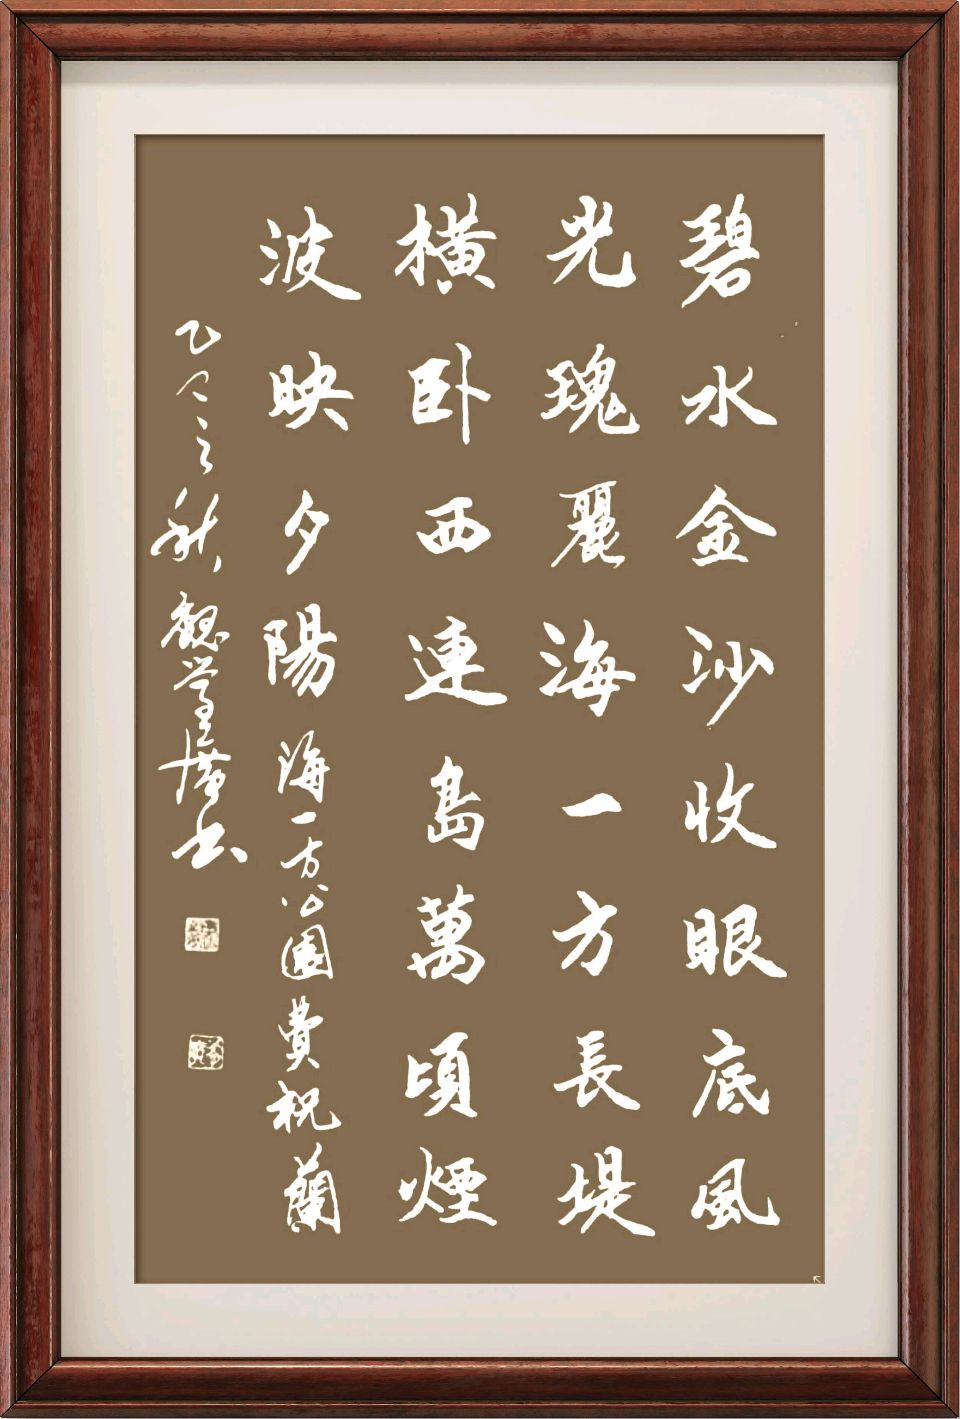 碧水金沙收眼底風
光瑰麗海一方長堤
橫卧西連島萬頃煙
波映夕陽 海一方公園 費祝蘭
乙巳之秋 觀學廣書